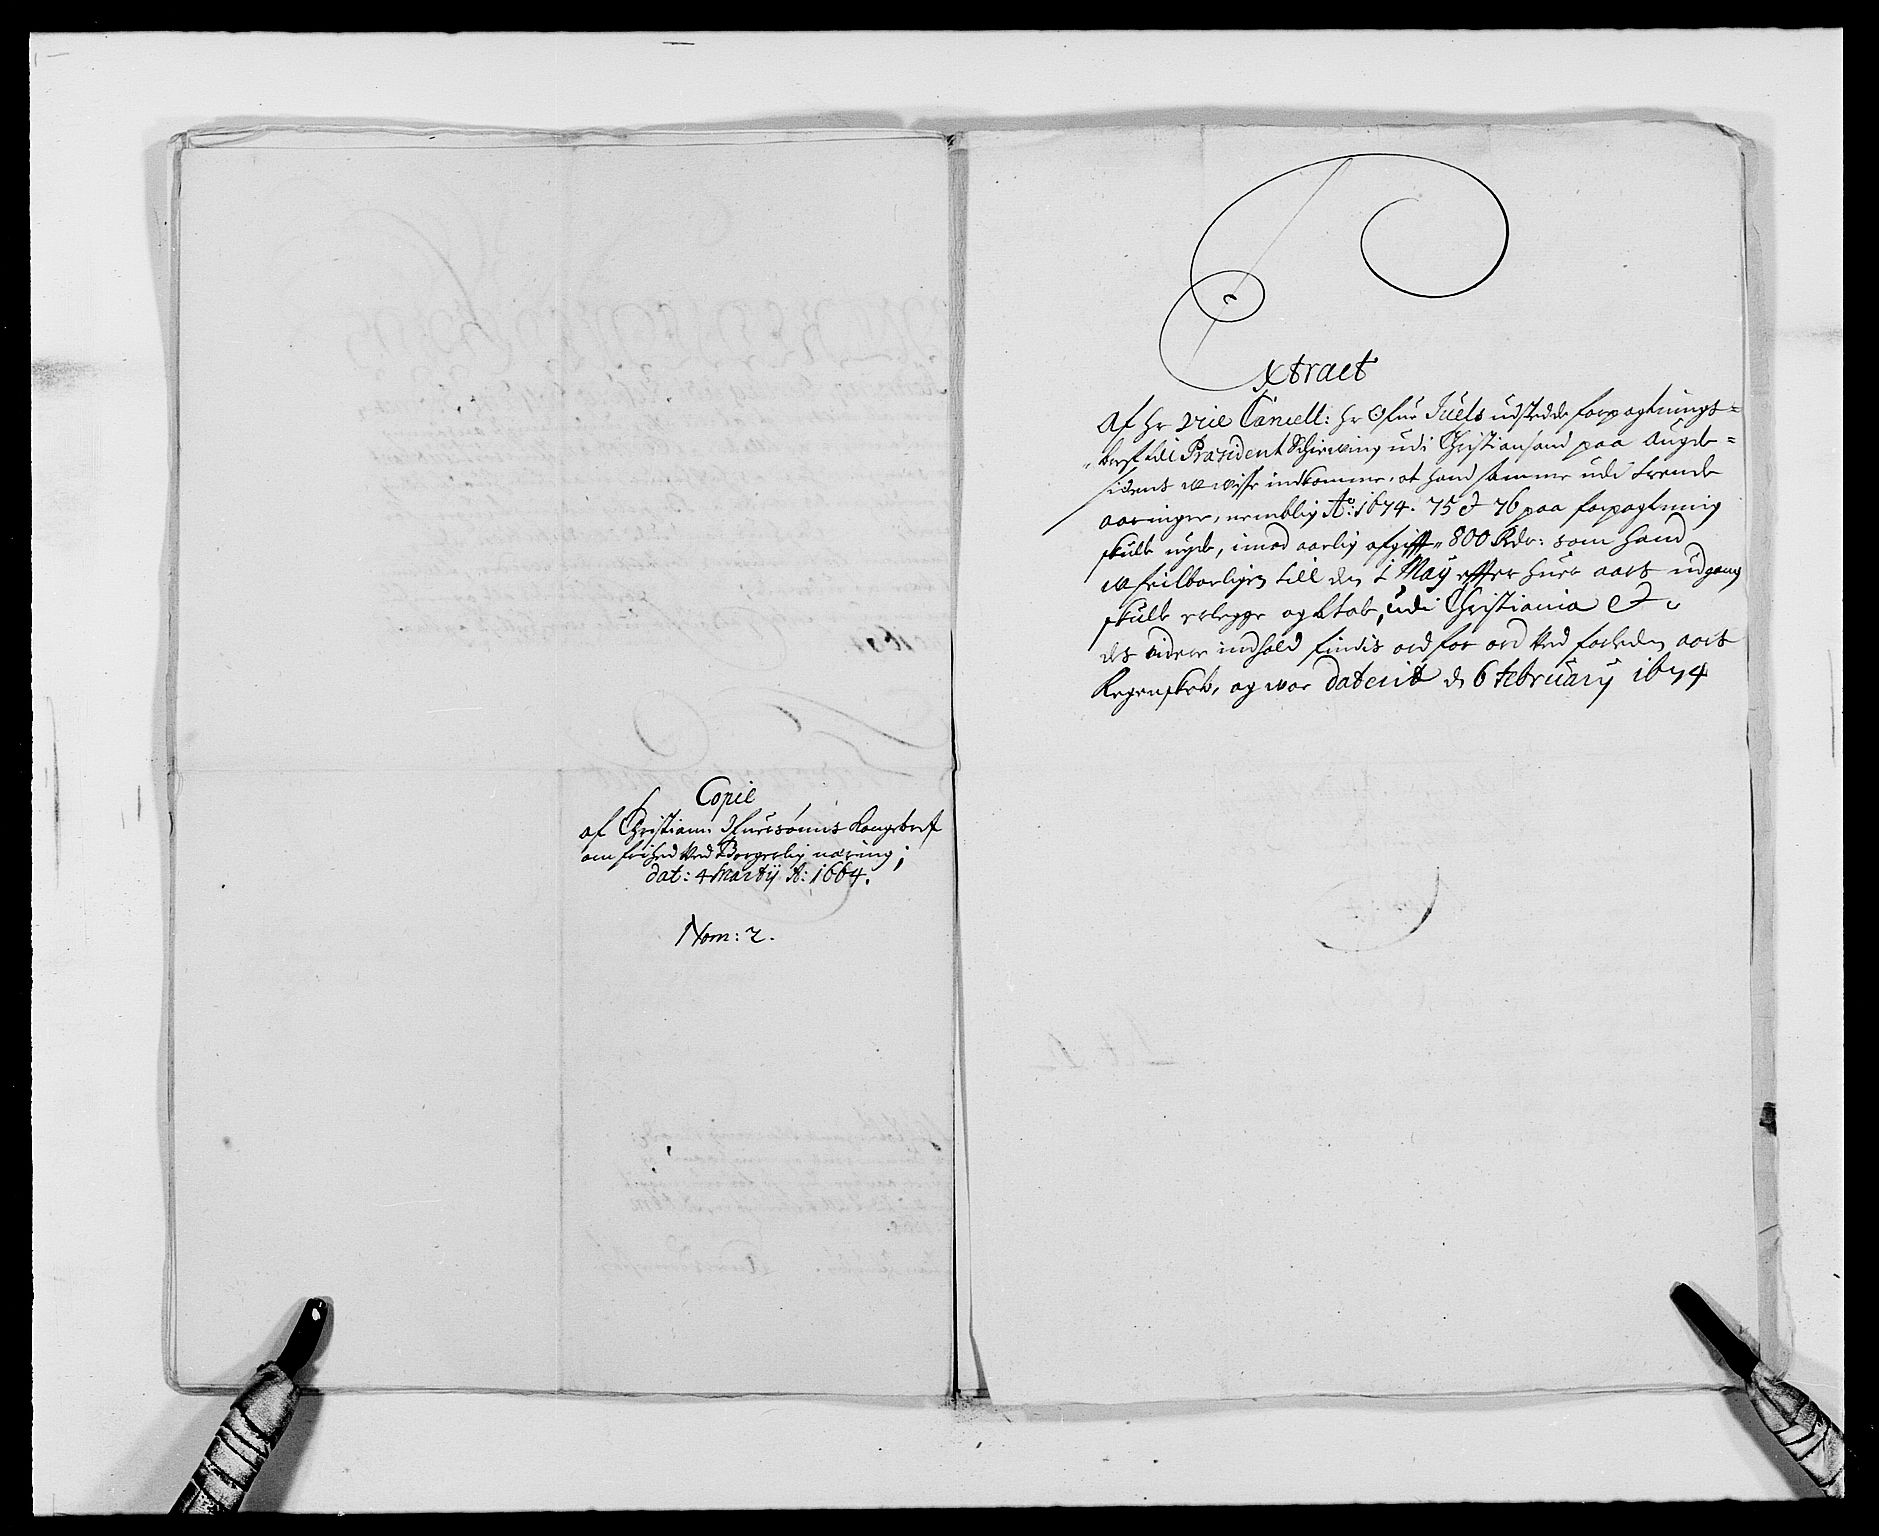 Copie
af Christian Ifuersønns Kongebref
om frihed ved Borgerlig næring;
dat: 4 Martij A: 1664.
Nom: 2.
Extract
Af Hr Vice Cancell: Hr Ofue Juels udstedde forpagtnings=
bref till Præsident Schierving udi Christiansand paa Augde=
sidens uvisse indkomme, at hand samme udi trende
aaringer, nemblig Ao: 1674. 75 & 76 paa forpagtning
skulle nyde, imod aarlig afgifft 800 Rdr: som hand
ufeilbarligen till den 1 Maij effter huer aars udgang
skulle erlegge og betale, udi Christiania &c
des videre indhold findis ord for ord ved forleden aars
Regenskab, og war daterit d 6 february 1674